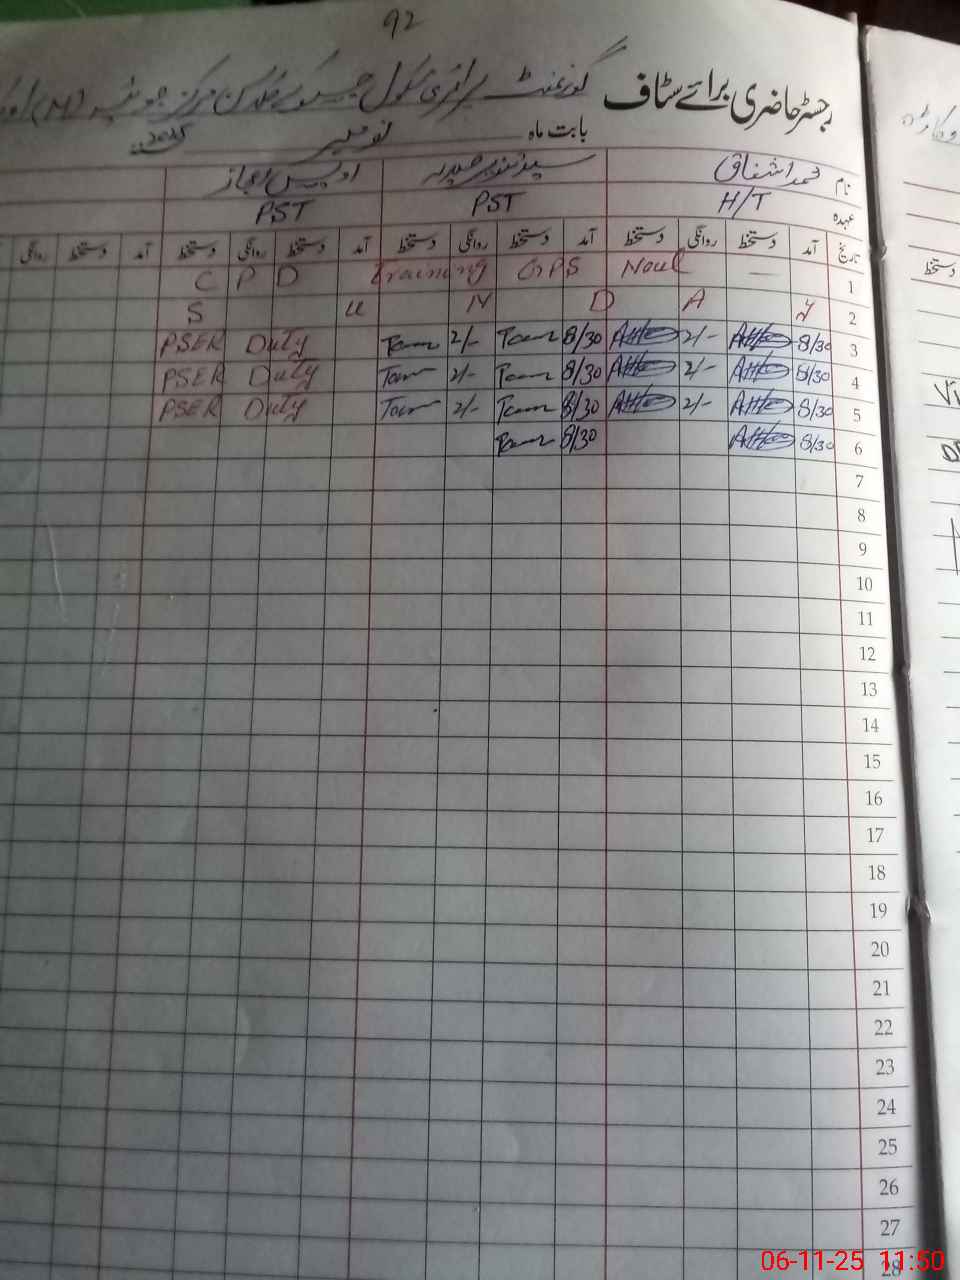 92
رجسٹر حاضری برائے سٹاف گورنمنٹ پرائمری سکول
بابت ماہ نومبر 2025
نام محمد اشفاق اویس اعجاز
عہدہ H/T PST PST
تاریخ آمد دستخط روانگی دستخط آمد دستخط روانگی دستخط آمد دستخط روانگی دستخط آمد دستخط روانگی
1 C P D Training GPS Noul
2 S u N D A y
3 8/30 2/- 8/30 2/- PSER Duty
4 8/30 2/- 8/30 2/- PSER Duty
5 8/30 2/- 8/30 2/- PSER Duty
6 8/30 8/30
7
8
9
10
11
12
13
14
15
16
17
18
19
20
21
22
23
24
25
26
27
28
دستخط
06-11-25 11:50